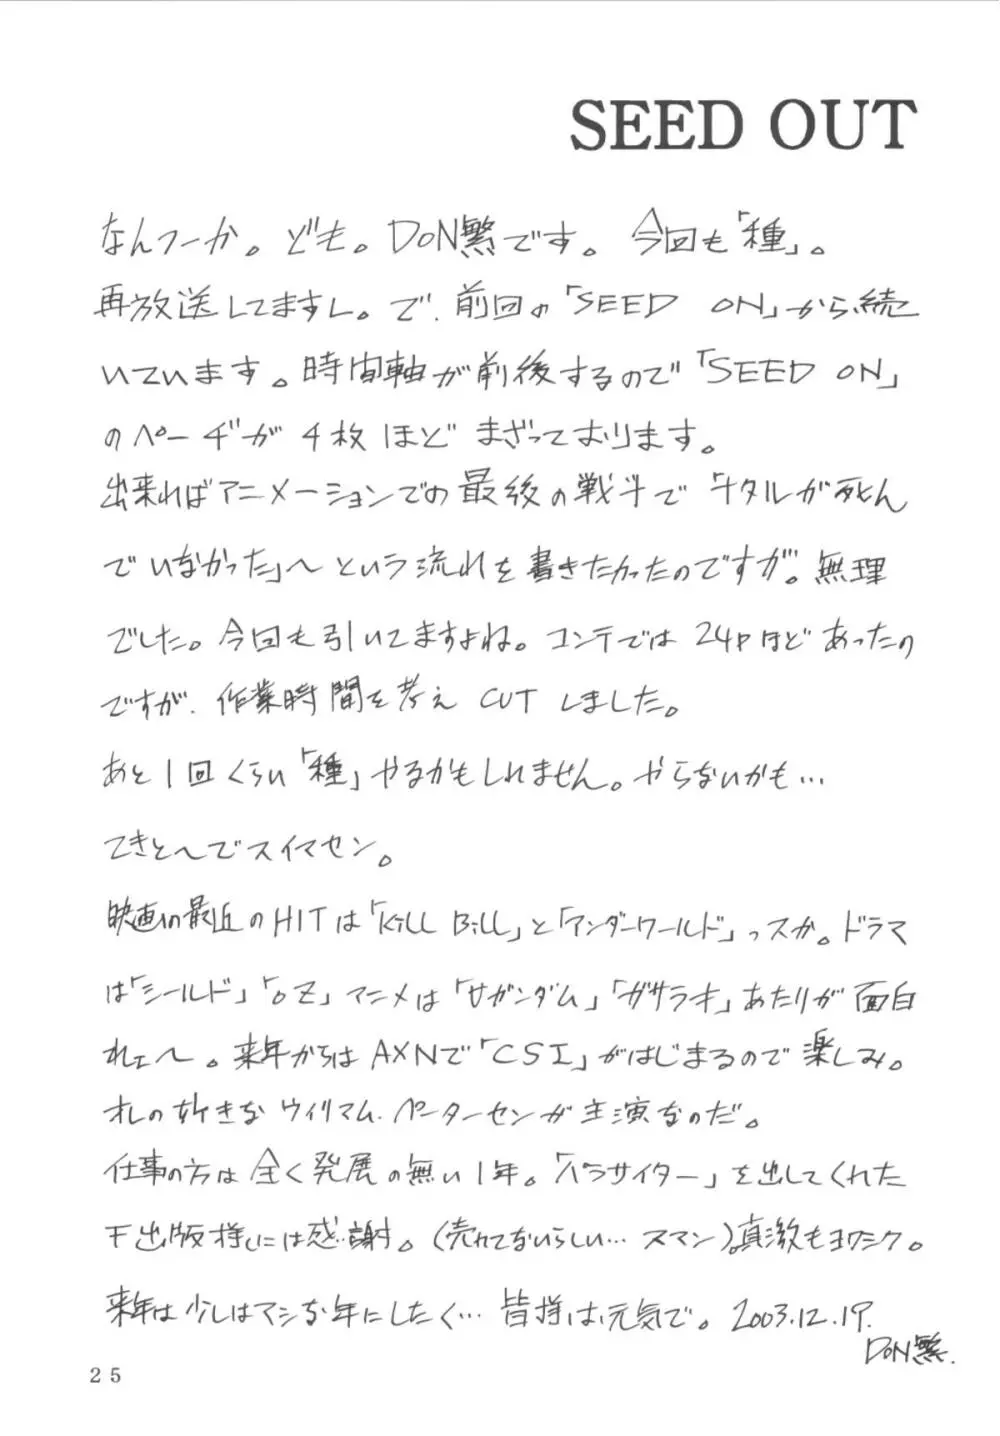 SEED OUT
なんつーか。ども。DON繁です。今回も「種」。
再放送してますし。で、前回の「SEED ON」から続
いています。時間軸が前後するので「SEED ON」
のページが4枚ほどまざっております。
出来ればアニメーションでの最後の戦斗で「キタルが死ん
でいなかった」〜という流れを書きたかったのですが。無理
でした。今回も引いてますよね。コンテでは24Pほどあったの
ですが、作業時間を考えCUTしました。
あと1回くらい「種」やるかもしれません。やらないかも…
てきと〜でスイマセン。
映画の最近のHITは「Kill Bill」と「アンダーワールド」っスか。ドラマ
は「シールド」「OZ」アニメは「∀ガンダム」「ガサラキ」あたりが面白
れェ〜。来年からはAXNで「CSI」がはじまるので楽しみ。
オレの好きなウィリアム・ピーターセンが主演なのだ。
仕事の方は全く発展の無い1年。「パラサイター」を出してくれた
出版様には感謝。(売れてないらしい…スマン)。真激もヨロシク。
来年は少しはマシな年にしたく…皆様は元気で。2003.12.19.
DON繁.
25